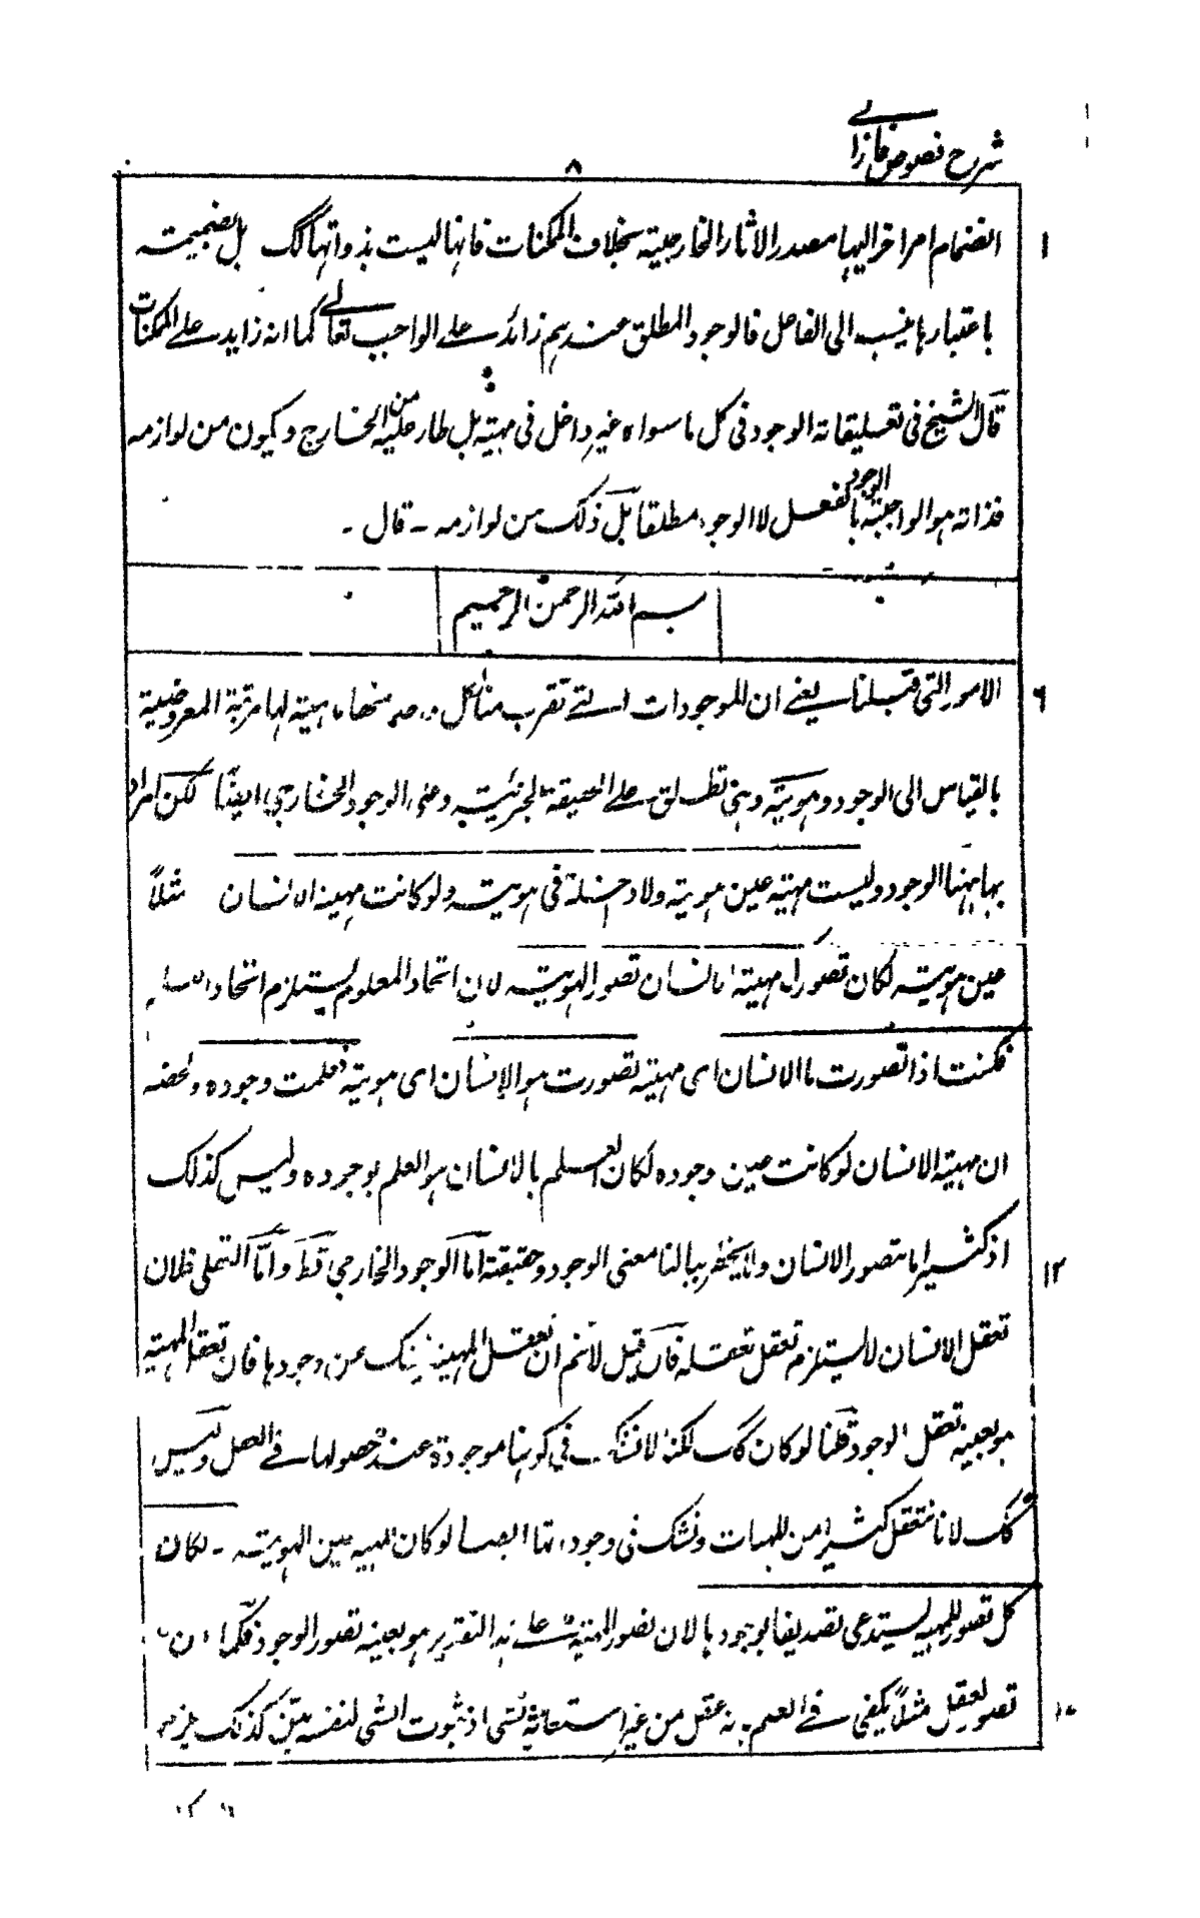 شرح نصوص فارابی
٨
انضمام امر اخر الیها مصدر الاثار الخارجیة بخلاف الممکنات فانها لیست بذواتها کک بل بضمیمته
باعتبارها ینسب الی الفاعل فالوجود المطلق عندهم زائد علے الواجب تعالے کما انه زاید علے الممکنات
قال الشیخ فی تعلیقاته الوجود فی کل ما سواه غیر داخل فی مهیته بل طار علیه من الخارج ویکون من لوازمه
فذاته هو الواجبیة الوجود بالفعل لا الوجود مطلقا بل ذلک من لوازمه - قال -
بسم الله الرحمن الرحیم
الامور التی قبلنا یعنے ان للموجودات التے تقرب منا لکل منها مهیته لها مرتبة المعروضیة
بالقیاس الی الوجود وهویته وهی تطلق علے الحقیقة الجزئیة وعلی الوجود الخارجی ایضا لکن المراد
بها ههنا الوجود ولیست مهیته عین هویته ولا داخلة فی هویته ولو کانت مهیة الانسان مثلاً
عین هویته لکان تصور مهیة الانسان تصور الهویته لان اتحاد المعلوم یستلزم اتحاد العلم
فکنت اذا تصورت ما الانسان ای مهیته تصورت هو الانسان ای هویته فعلمت وجوده ومحصله
ان مهیة الانسان لو کانت عین وجوده لکان العلم بالانسان هو العلم بوجوده ولیس کذلک
اذ کثیرا ما نتصور الانسان ولا یخطر ببالنا معنی الوجود وحقیقته اما الوجود الخارجی فظ واما العقلی فلان
تعقل الانسان لا یستلزم تعقل تعقله فان قیل لانم ان تعقل المهیة ینفک عن وجودها فان تعقل المهیة
هو بعینه تعقل الوجود قلنا لو کان کک لکنا لا نشک فی کونها موجودة عند حصولها فے العقل ولیس
کک لانا نتعقل کثیرا من المهیات ونشک فی وجوداتها ایضا لو کان المهیة عین الهویته - لکان
کل تصور للمهیة یستدعی تصدیقا بوجودها لان تصور المهیة علے هذا التقدیر هو بعینه تصور الوجود فکما ان
تصور العقل مثلاً یکفی فے العلم بانه عقل من غیر استعانة بشی اذ ثبوت الشی لنفسه بین کذلک یلزم
١
٦
١٢